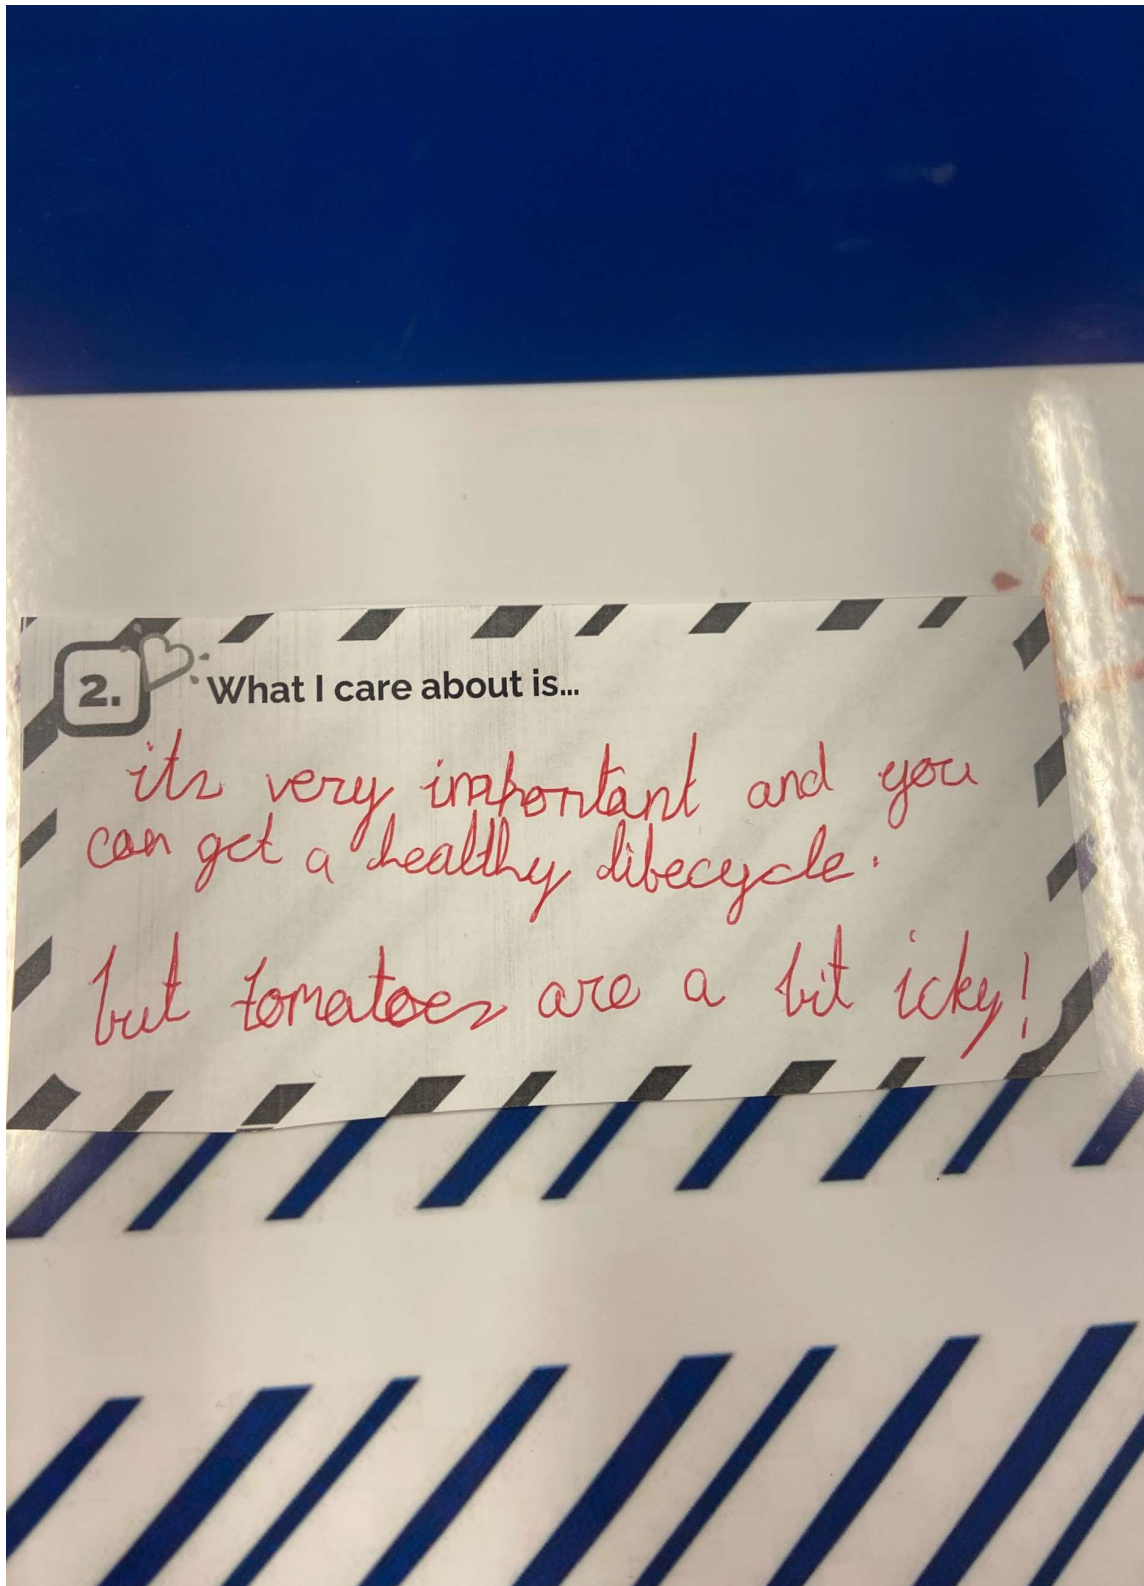 2.
What I care about is...
its very important and you
can get a healthy lifecycle.
but tomatoes are a bit icky!